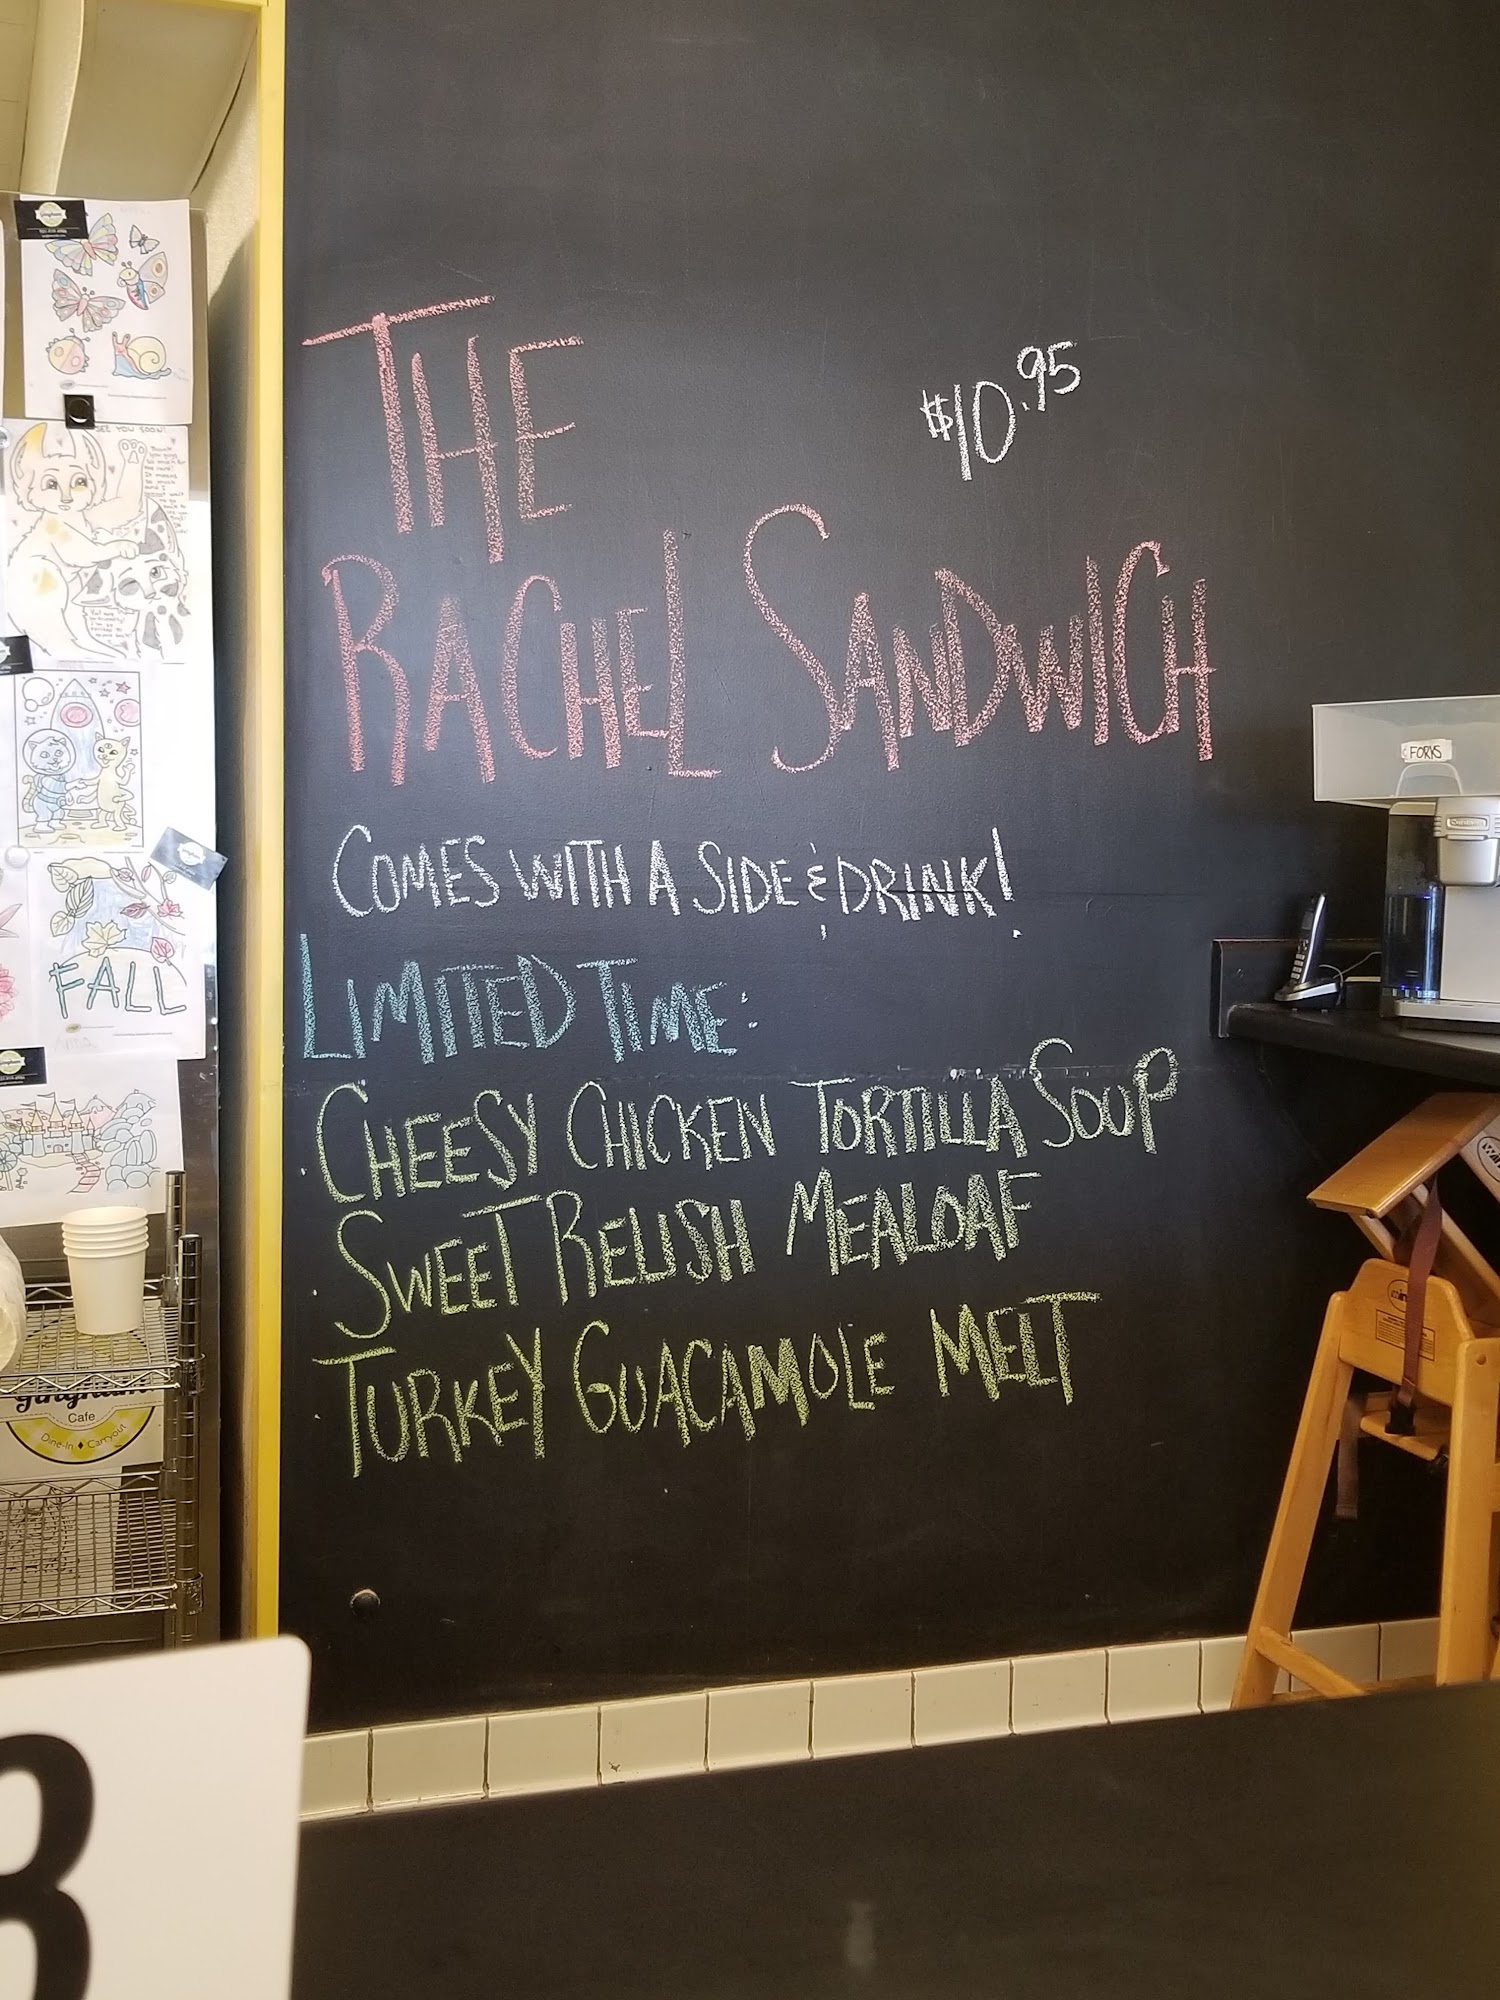 THE
$10.95
RACHEL SANDWICH
COMES WITH A SIDE & DRINK!
LIMITED TIME:
CHEESY CHICKEN TORTILLA SOUP
SWEET RELISH MEALOAF
TURKEY GUACAMOLE MELT
FORKS
SEE YOU SOON!
FALL
gingham
Cafe
Dine-In ♦ Carryout
3